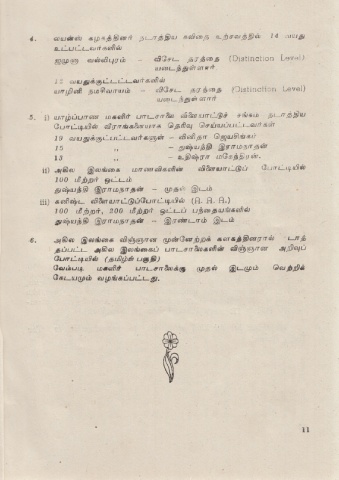 4. லயன்ஸ் கழகத்தினர் நடாத்திய கவிதை உற்சவத்தில் 14 வயது
உட்பட்டவர்களில்
வல்லிபுரம் – விசேட தரத்தை (Distinction Level)
யடைத்துள்ளார்
12 வயதுக்குட்பட்டவர்களில்
யாழினி நமசிவாயம் – விசேட தரத்தை (Distinction Level)
யடைந்துள்ளார்
5. i) யாழ்ப்பாண மகளிர் பாடசாலை விளையாட்டுச் சங்கம் நடாத்திய
போட்டியில் வீராங்கனையாக தெரிவு செய்யப்பட்டவர்கள்
19 வயதுக்குட்பட்டவர்களுள் – வினிதா ஜெயசிங்கம்
15 ,, – துஷ்யந்தி இராமநாதன்
13 ,, – உதிஷ்ரா மகேந்திரன்.
ii) அகில இலங்கை மாணவிகளின் விளையாட்டுப் போட்டியில்
100 மீற்றர் ஓட்டம்
துஷ்யந்தி இராமநாதன் – முதல் இடம்
iii) கனிஷ்ட விளையாட்டுப்போட்டியில் (J. A. A.)
100 மீற்றர், 200 மீற்றர் ஓட்டப் பந்தையங்களில்
துஷ்யந்தி இராமநாதன் – இரண்டாம் இடம்
6. அகில இலங்கை விஞ்ஞான முன்னேற்றக் கழகத்தினரால் நடாத்
தப்பட்ட அகில இலங்கைப் பாடசாலைகளின் விஞ்ஞான அறிவுப்
போட்டியில் (தமிழ்ப் பகுதி)
வேம்படி மகளிர் பாடசாலைக்கு முதல் இடமும் வெற்றிக்
கேடயமும் வழங்கப்பட்டது.
11